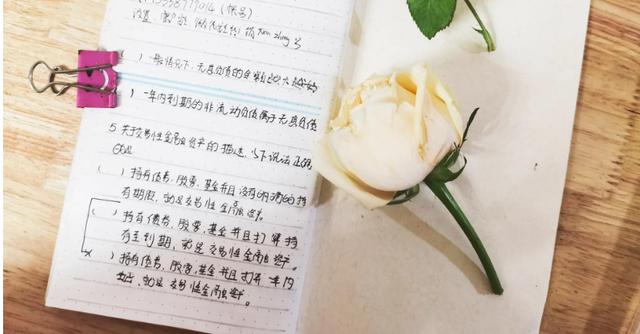 (帐号)
设置
)一般情况下,无息负债的金额
)一年内到期的非流动负债属于无息负债
5.关于交易性金融资产的描述,以下说法正确的
()持有债券,股票,基金并且没有明确的持
有期限,就是交易性金融资产。
()持有债券,股票,基金并且打算持
有至到期,就是交易性金融资产。
)持有债券,股票,基金并且打算一年内
就是交易性金融资产。